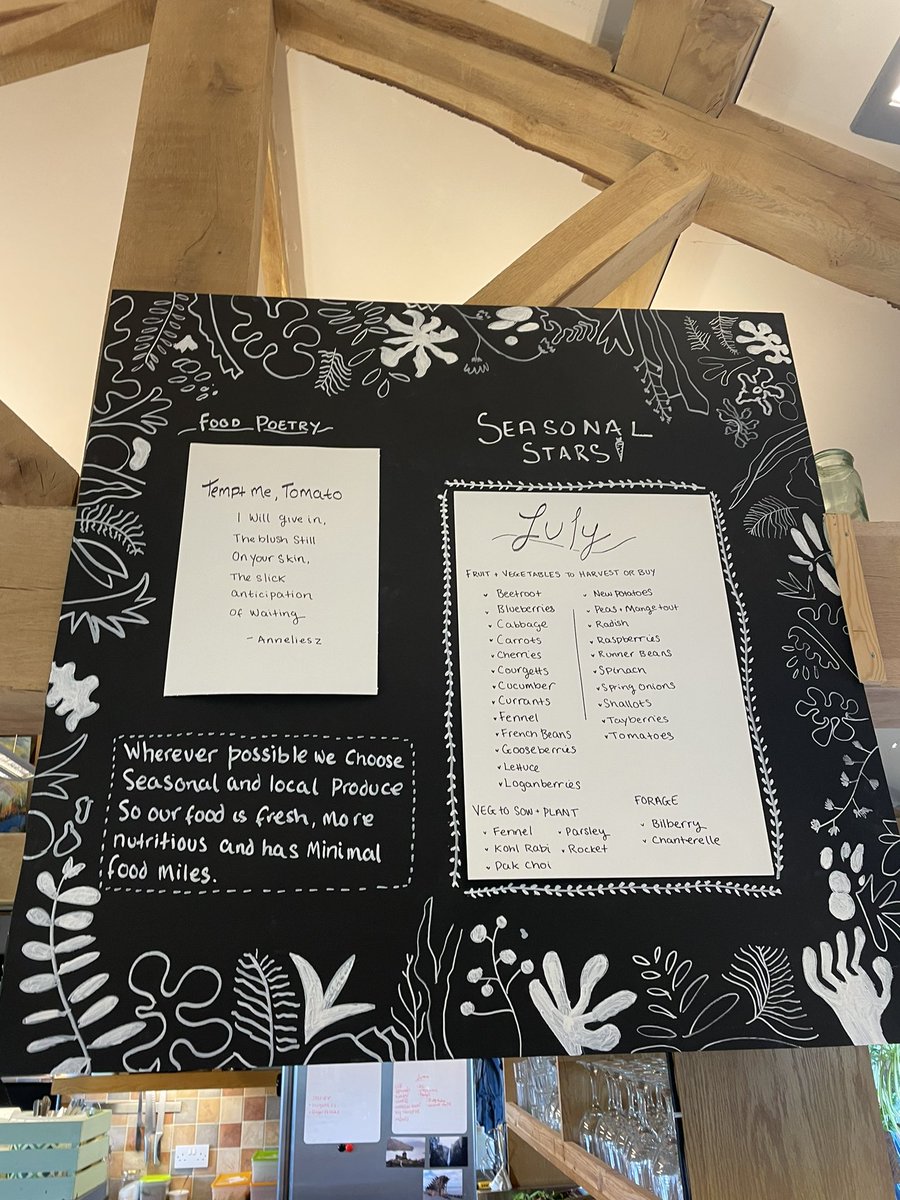 FOOD POETRY
Tempt me, Tomato
I Will give in,
The blush Still
On your Skin,
The slick
anticipation
Of Waiting
- Anneliesz
Wherever possible we Choose
Seasonal and local Produce
So our food is fresh, more
nutritious and has Minimal
food miles.
SEASONAL
STARS
July
FRUIT + VEGETABLES TO HARVEST OR BUY
Beetroot
Blueberries
Cabbage
Carrots
Cherries
Courgetts
Cucumber
Currants
Fennel
French Beans
Gooseberries
Lettuce
Loganberries
New Potatoes
Peas + Mangetout
Radish
Raspberries
Runner Beans
Spinach
Spring Onions
Shallots
Tayberries
Tomatoes
VEG TO SOW + PLANT
Fennel
Kohl Rabi
Pak Choi
Parsley
Rocket
FORAGE
Bilberry
Chanterelle